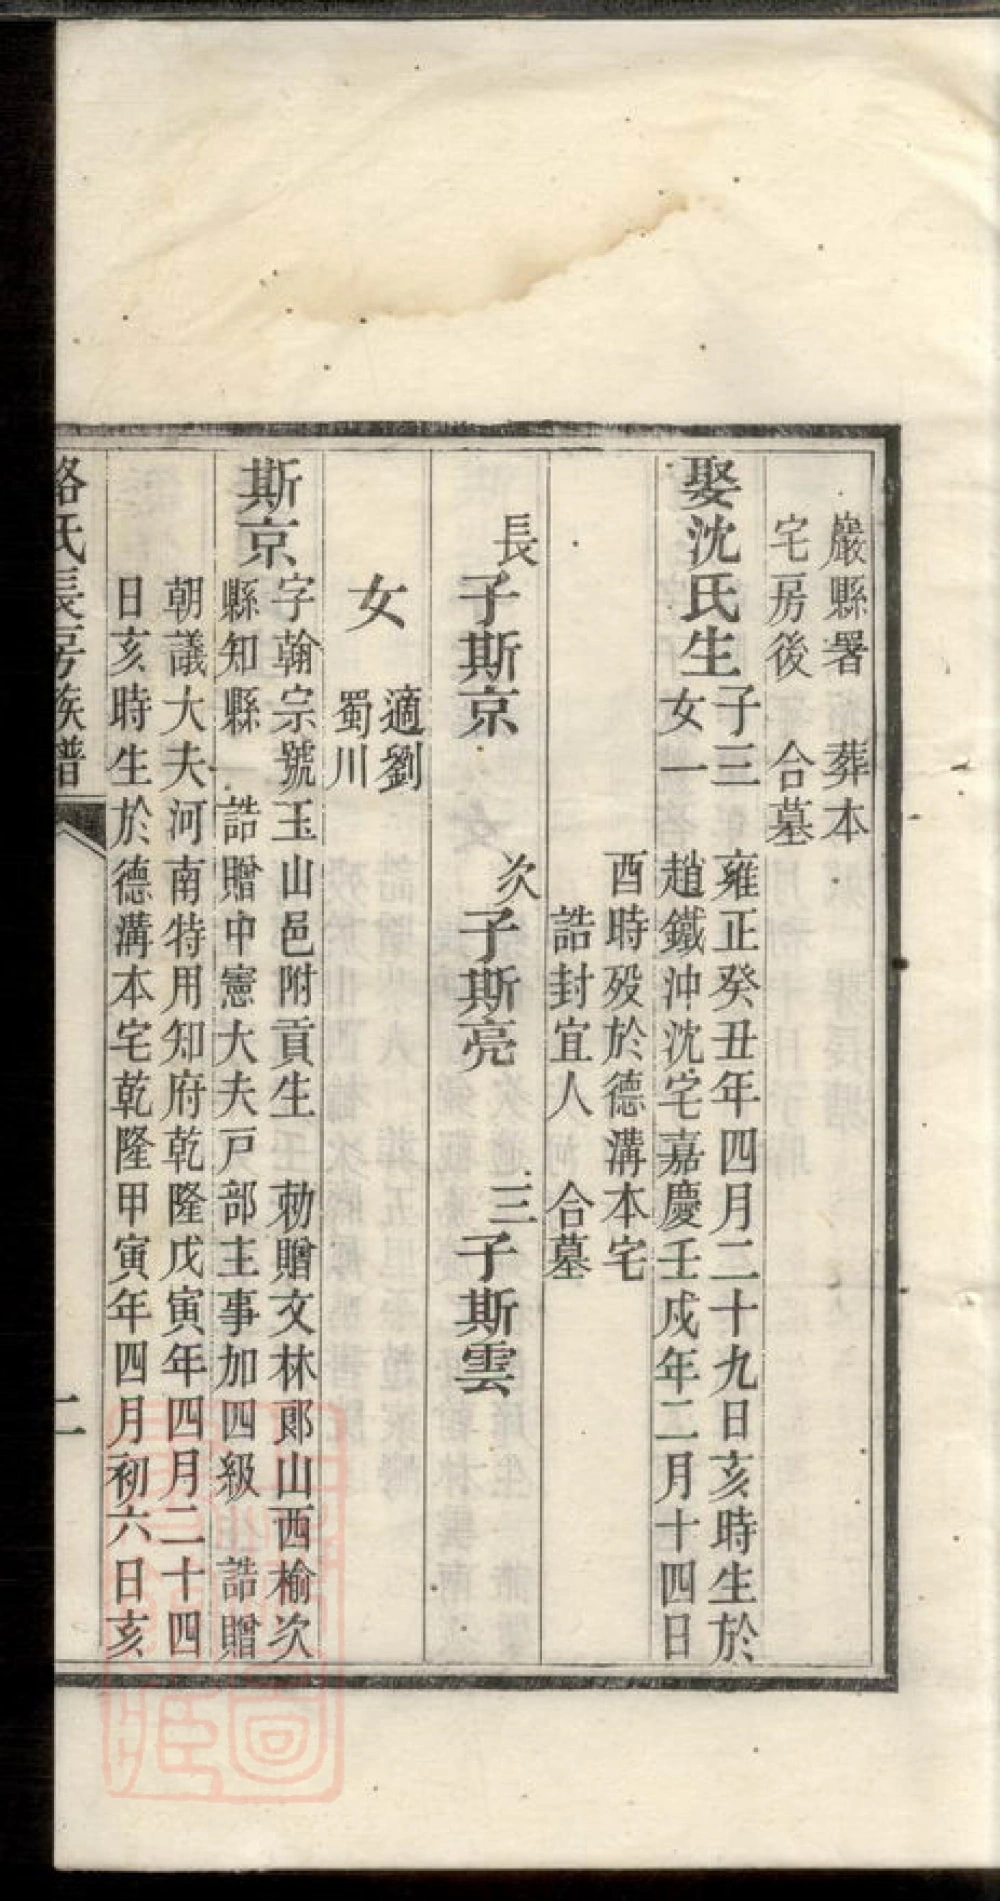 巖縣署　葬本
宅房後　合墓
娶沈氏生
子三
女一
雍正癸丑年四月二十九日亥時生於
趙鐵沖沈宅嘉慶壬戌年二月十四日
酉時歿於德溝本宅
誥封宜人　合墓
長子斯京　次子斯亮　三子斯雲
女
適劉
蜀川
斯京
字翰宗號玉山邑附貢生　勅贈文林郎山西榆次
縣知縣　誥贈中憲大夫戸部主事加四級　誥贈
朝議大夫河南特用知府乾隆戊寅年四月二十四
日亥時生於德溝本宅乾隆甲寅年四月初六日亥
氏長房族譜
二